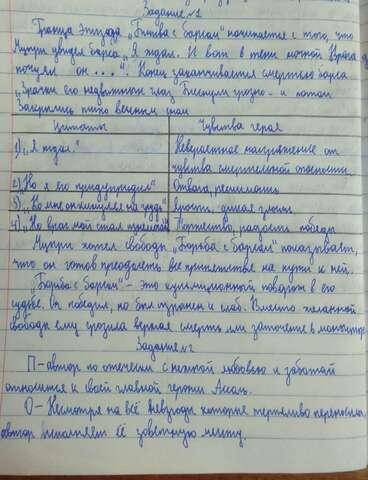 Задание №1
Граница эпизода „Битва с барсом" начинается с того, что
Мцыри увидел барса „Я ждал. И вот в тени ночной Врага
почуял он ...." Конец заканчивается смертью барса
„Зрачки его недвижных глаз Блеснули грозно - и потом
Закрылись тихо вечным сном
Цитаты Чувства героя
1) „Я ждал." Невероятное напряжение от
чувства смертельной опасности.
2) „Но я его предупредил" Отвага, решимость
3) „Но мне он кинулся на грудь" Ярость, дикая злоба
4) „Но враг мой стал изнемогать" торжество, радость победы
Мцыри хотел свободы. „Борьба с барсом" показывает,
что он готов преодолеть все препятствия на пути к ней.
„Борьба с барсом" - это кульминационный поворот в его
судьбе. Он победил, но был изранен и слаб. Вместо желанной
свободы ему грозила верная смерть или заточение в монастыре
Задание №2
П - автор по отечески с нежной любовью и заботой
относится к своей главной героини Ассоль.
О - Несмотря на всё невзгоды которые терпеливо переносила
автор исполняет её заветную мечту.